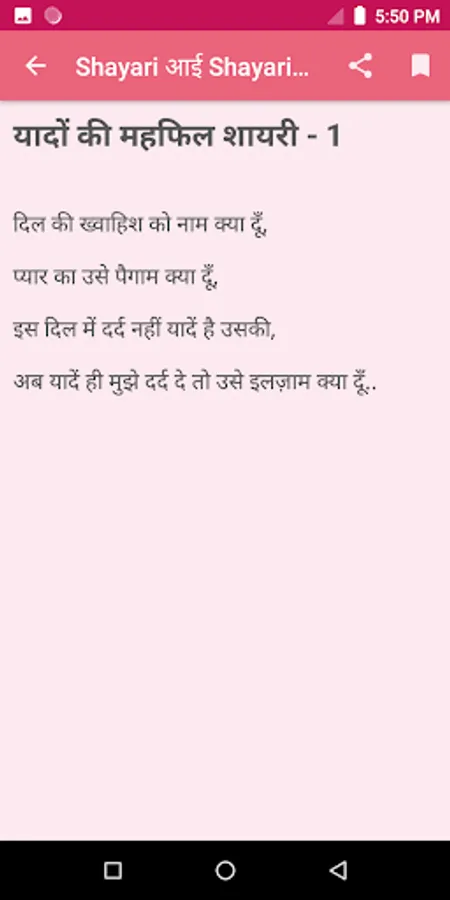 5:50 PM
Shayari आई Shayari...
यादों की महफिल शायरी - 1
दिल की ख्वाहिश को नाम क्या दूँ,
प्यार का उसे पैगाम क्या दूँ,
इस दिल में दर्द नहीं यादें है उसकी,
अब यादें ही मुझे दर्द दे तो उसे इलज़ाम क्या दूँ..